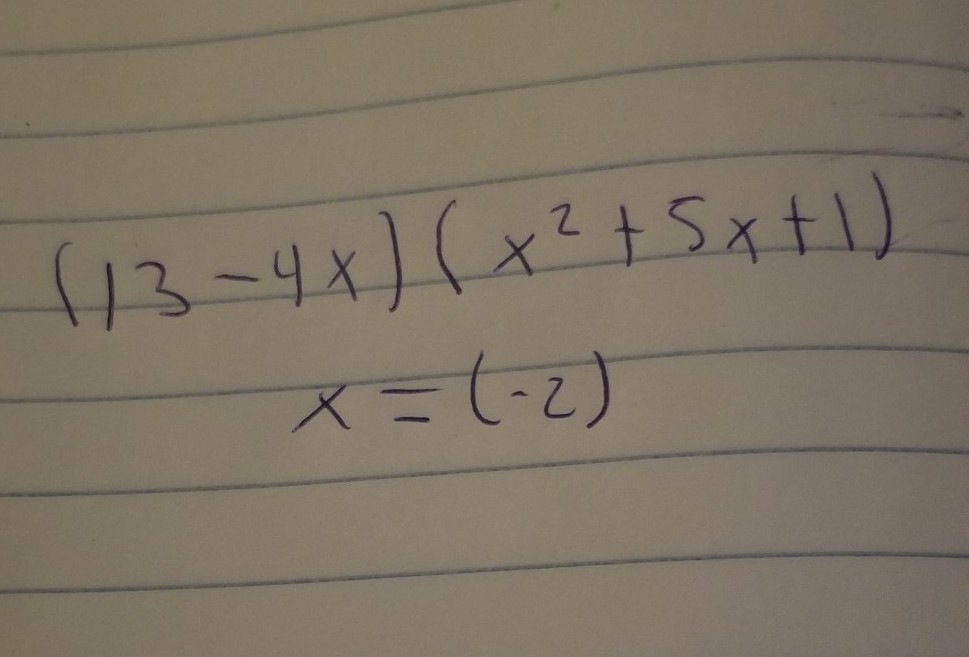 (13-4x)(x²+5x+1)
x=(-2)